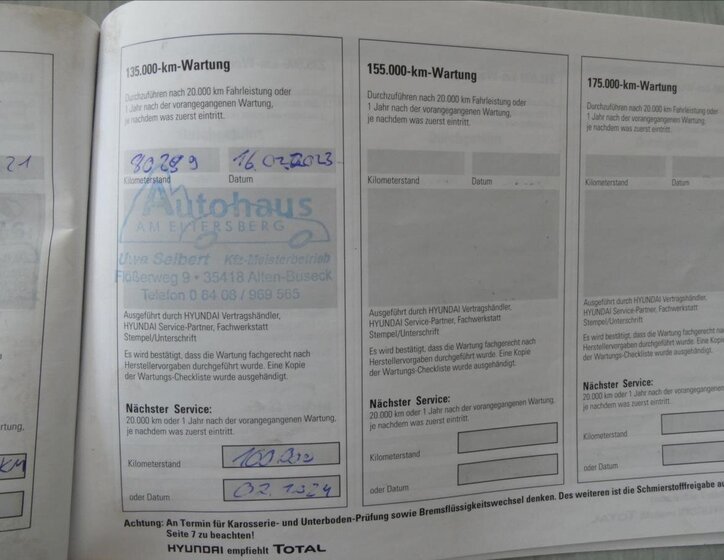 21
135.000-km-Wartung
Durchzuführen nach 20.000 km Fahrleistung oder
1 Jahr nach der vorangegangenen Wartung,
je nachdem was zuerst eintritt.
80299 16.02.2023
Kilometerstand Datum
Autohaus
AM ELTERSBERG
Uwe Seibert Kfz-Meisterbetrieb
Flößerweg 9 • 35418 Alten-Buseck
Telefon 0 64 08 / 969 565
Ausgeführt durch HYUNDAI Vertragshändler,
HYUNDAI Service-Partner, Fachwerkstatt
Stempel/Unterschrift
Es wird bestätigt, dass die Wartung fachgerecht nach
Herstellervorgaben durchgeführt wurde. Eine Kopie
der Wartungs-Checkliste wurde ausgehändigt.
Nächster Service:
20.000 km oder 1 Jahr nach der vorangegangenen Wartung,
je nachdem, was zuerst eintritt.
Kilometerstand 100.000
oder Datum 02.2024
155.000-km-Wartung
Durchzuführen nach 20.000 km Fahrleistung oder
1 Jahr nach der vorangegangenen Wartung,
je nachdem was zuerst eintritt.
Kilometerstand Datum
Ausgeführt durch HYUNDAI Vertragshändler,
HYUNDAI Service-Partner, Fachwerkstatt
Stempel/Unterschrift
Es wird bestätigt, dass die Wartung fachgerecht nach
Herstellervorgaben durchgeführt wurde. Eine Kopie
der Wartungs-Checkliste wurde ausgehändigt.
Nächster Service:
20.000 km oder 1 Jahr nach der vorangegangenen Wartung,
je nachdem, was zuerst eintritt.
Kilometerstand
oder Datum
175.000-km-Wartung
Durchzuführen nach 20.000 km Fahrleistung
1 Jahr nach der vorangegangenen Wartung,
je nachdem was zuerst eintritt.
Kilometerstand Datum
Ausgeführt durch HYUNDAI Vertragshändler,
HYUNDAI Service-Partner, Fachwerkstatt
Stempel/Unterschrift
Es wird bestätigt, dass die Wartung fachgerecht
Herstellervorgaben durchgeführt wurde. Eine
der Wartungs-Checkliste wurde ausgehändigt.
Nächster Service:
20.000 km oder 1 Jahr nach der vorangegangenen
je nachdem, was zuerst eintritt.
Kilometerstand
oder Datum
Achtung: An Termin für Karosserie- und Unterboden-Prüfung sowie Bremsflüssigkeitswechsel denken. Des weiteren ist die Schmierstofffreigabe
Seite 7 zu beachten!
HYUNDAI empfiehlt TOTAL